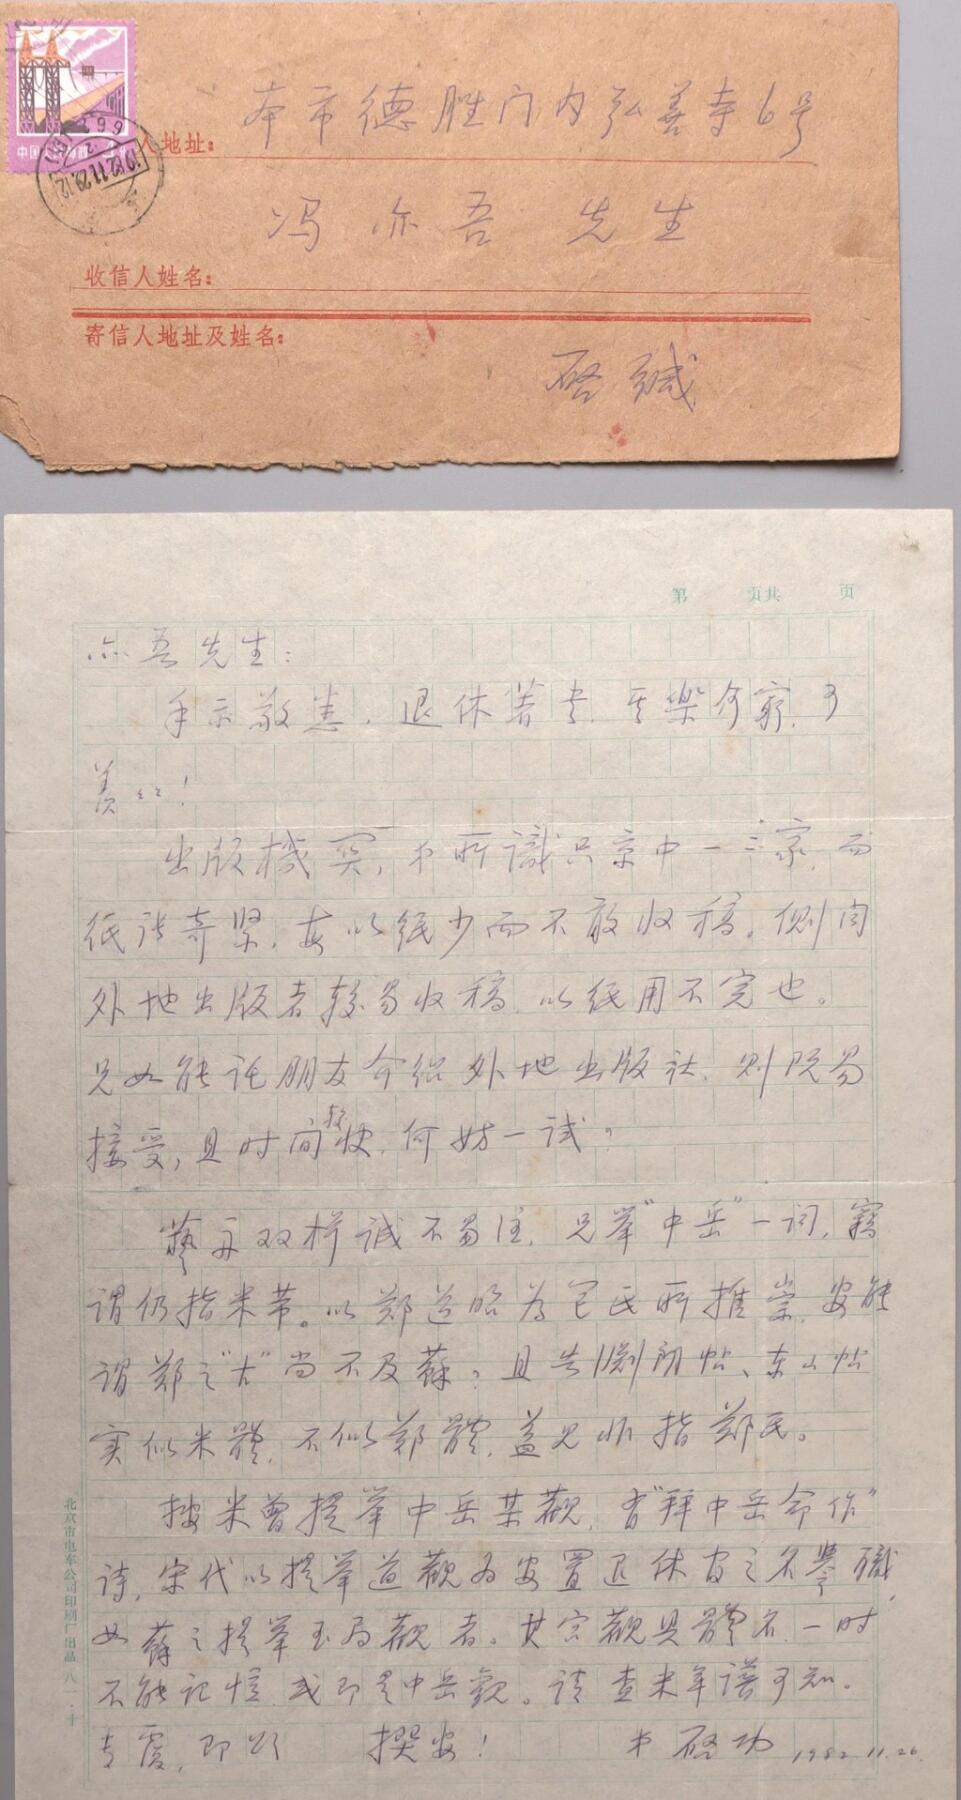 本市德胜门内弘善寺6号
人地址:
冯亦吾 先生
收信人姓名:
寄信人地址及姓名:
启缄
第 页共 页
亦吾先生:
手示敬悉,退休著书,其乐何穷,可
羡〻!
出版機関,弟所識只京中一二家,而
纸张奇紧,每以纸少而不敢收稿。侧闻
外地出版者较易收稿,以纸用不完也。
兄如能託朋友介绍外地出版社,则既易
接受,且时间较快,何妨一试?
藝舟双楫诚不易注,兄举“中岳”一词,窃
谓仍指米芾。以郑道昭为包氏所推崇,安能
谓郑之“古”尚不及蘇?且 帖、东山帖
实似米體,不似郑體,益见非指郑氏。
按米曾提举中岳某觀,有“拜中岳命作”
诗,宋代以提举道觀为安置退休官之名誉職,
如蘇之提举玉局觀者。其宫觀具體名,一时
不能记憶,或即是中岳觀。请查米年谱可知。
专覆,即颂 撰安! 弟启功 1982.11.26.
北京市电车公司印刷厂出品 八一·十